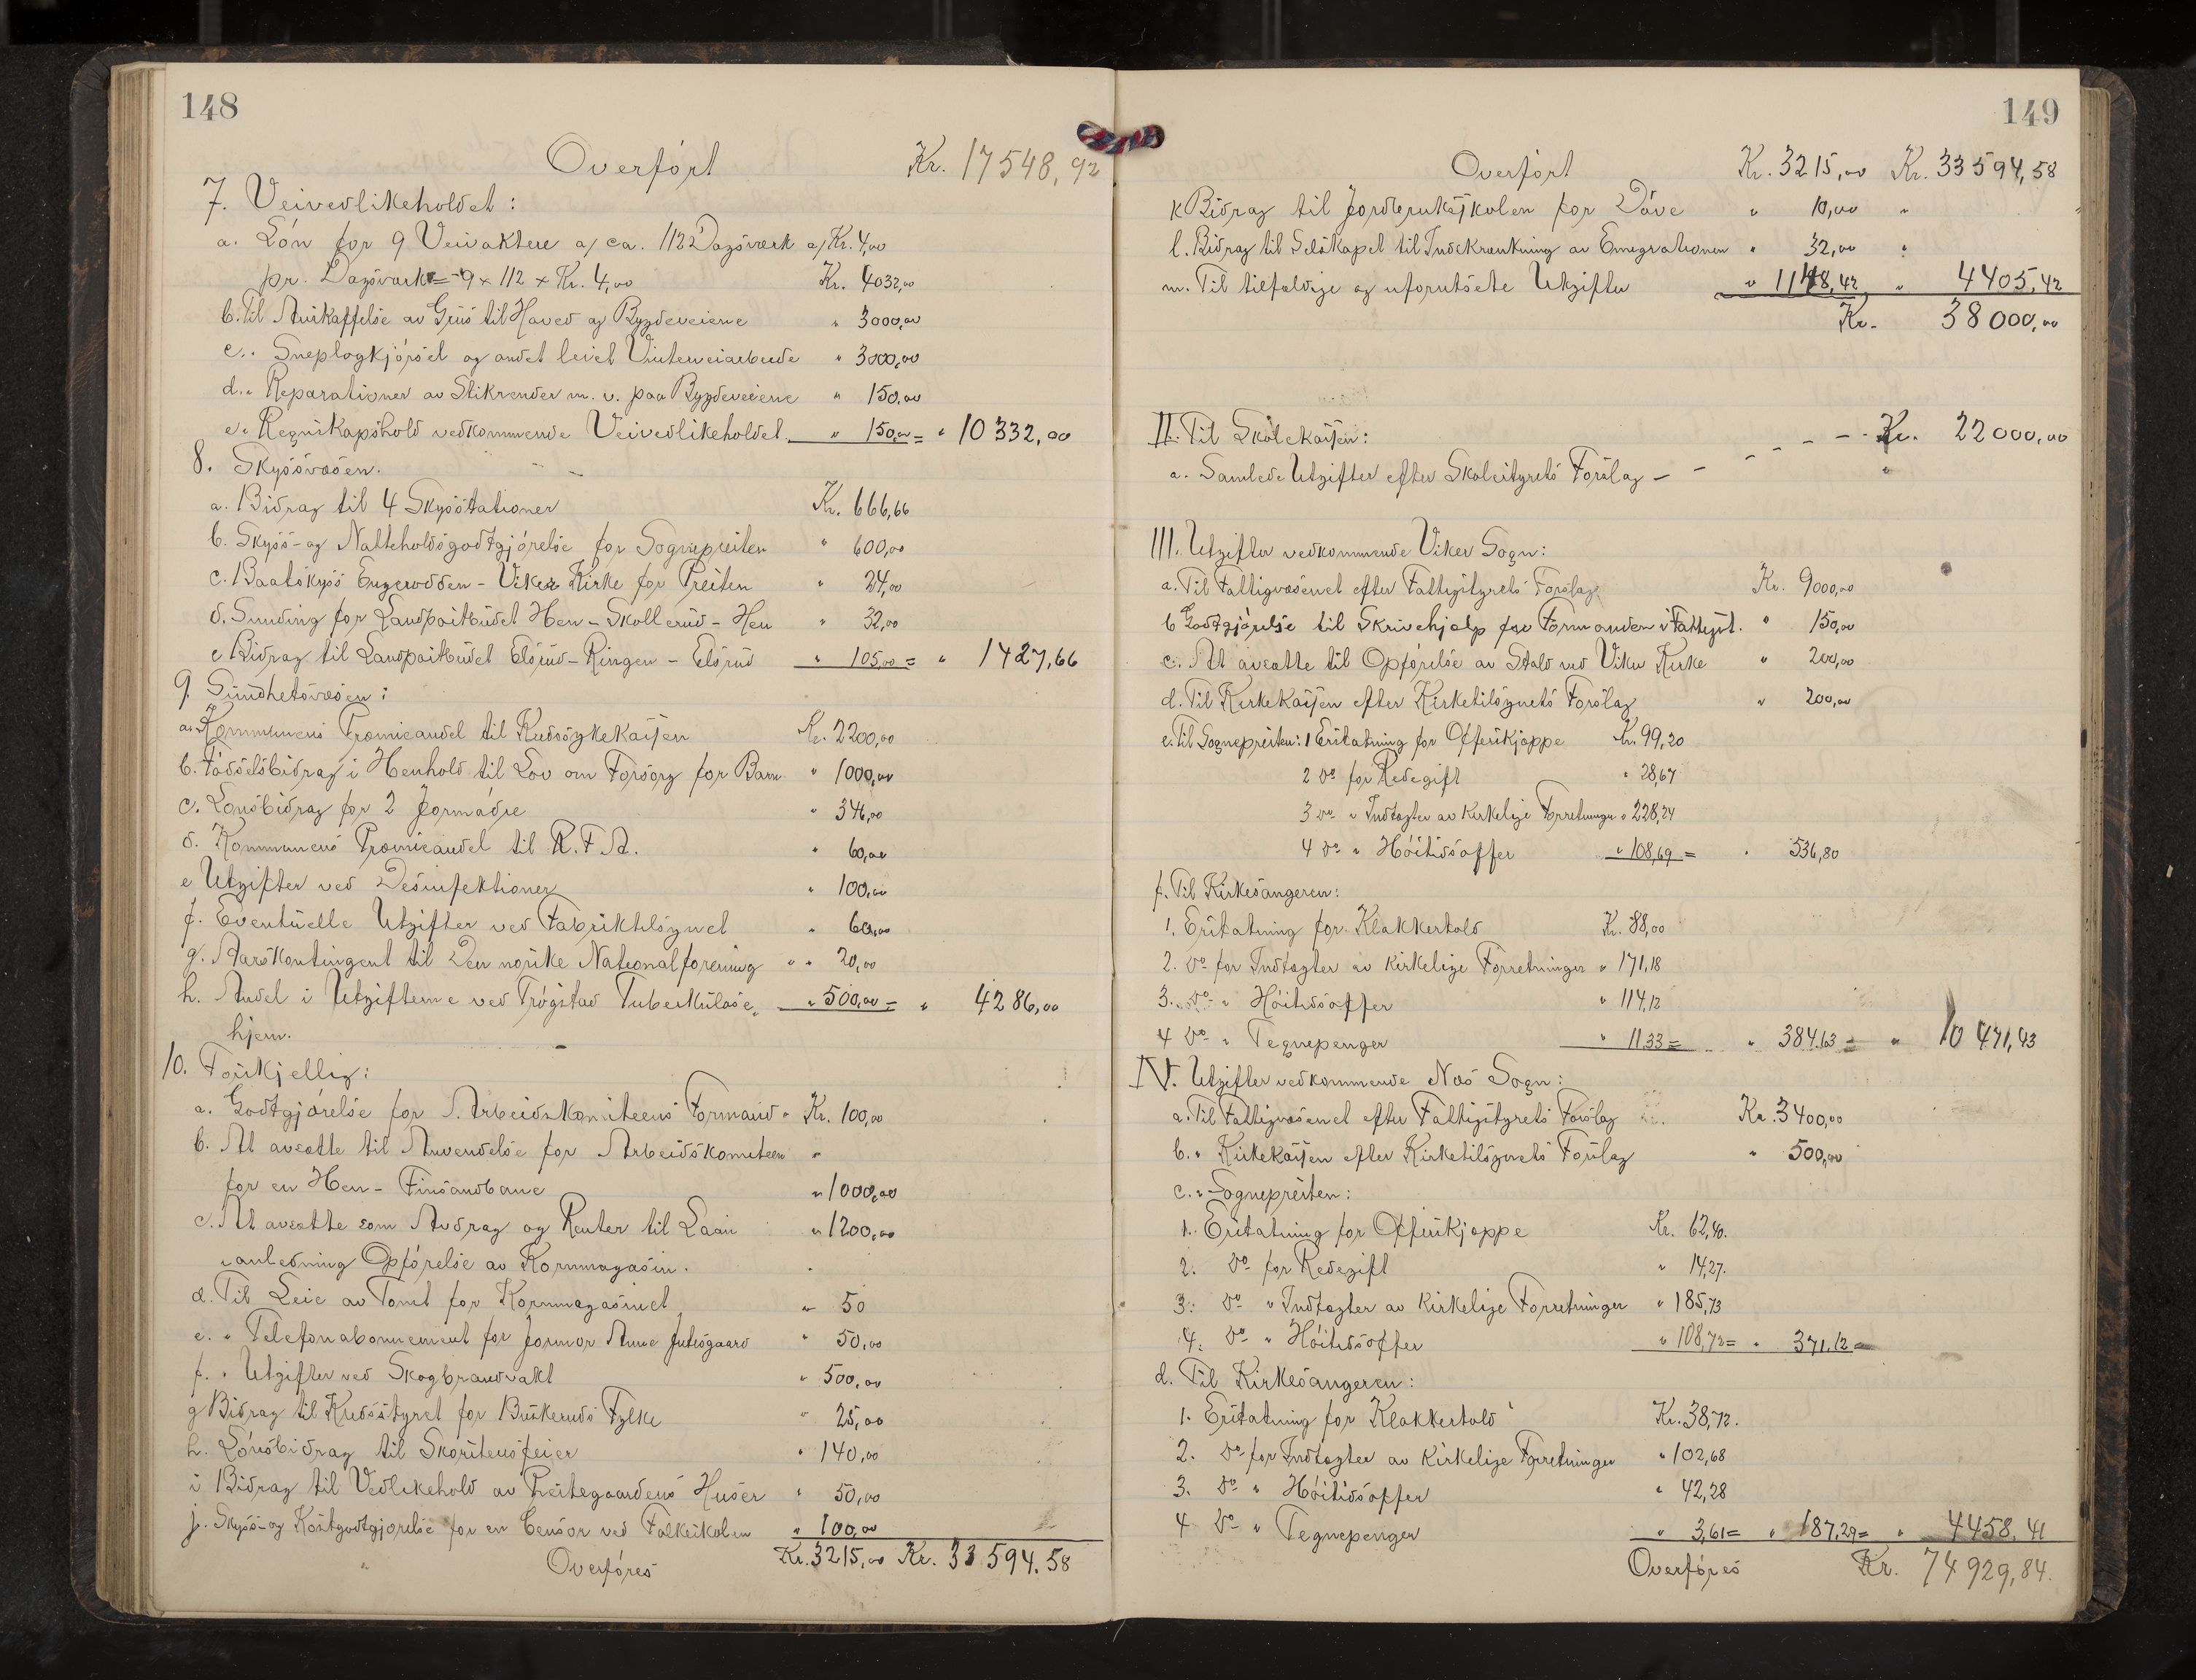 148
Overført Kr. 17548,92
7. Veivedlikeholdet:
a. Løn for 9 Veivaktere a/ ca. 112 Dagsverk a/ Kr. 4,00
pr. Dagsverk = 9 x 112 x Kr. 4,00 Kr. 4032,00
b. Til Anskaffelse av Grus til Hoved og Bygdeveiene " 3000,00
c. " Sneplogkjørsel og andet leiet Vinterveiarbeide " 3000,00
d. " Reparationer av Stikrender m. v. paa Bygdeveiene " 150,00
e. " Regnskapshold vedkommende Veivedlikeholdet " 150,00 = " 10332,00
8. Skyssvæsen.
a. Bidrag til 4 Skysstationer Kr. 666,66
b. Skyss- og Natteholdsgodtgjørelse for Sognepresten " 600,00
c. Baatskyss Engerodden - Viker Kirke for Presten " 24,00
d. Sunding for Landpostbudet Hen - Skollerud - Hen " 32,00
e Bidrag til Landpostbudet Elsrud - Ringen - Elsrud " 105,00 = " 1427,66
9. Sundhetsvæsen:
a. Kommunens Præmieandel til Kredssykekassen Kr. 2200,00
b. Fødselsbidrag i Henhold til Lov om Forsorg for Barn " 1000,00
c. Lønsbidrag for 2 Jormødre " 346,00
d. Kommunens Præmieandel til R.F.A. " 60,00
e Utgifter ved Desinfektioner " 100,00
f. Eventuelle Utgifter ved Fabriktilsynet " 60,00
g. Aarskontingent til Den norske Nationalforening " " 20,00
h. Andel i Utgifterne ved Trøgstad Tuberkulose " 500,00 = " 4286,00
hjem.
10. Forskjellig:
a. Godtgjørelse for Arbeidskomiteens Formand " Kr. 100,00
b. At avsætte til Anvendelse for Arbeidskomiteen "
for en Hen - Finsandbane " 1000,00
c. At avsætte som Avdrag og Renter til Laan " 1200,00
i anledning Opførelse av Kornmagasin.
d. Til Leie av Tomt for Kornmagasinet " 50
e. " Telefonabonnement for Jormor Anne Julsgaard " 50,00
f. " Utgifter ved Skogbrandvakt " 500,00
g Bidrag til Kredsstyret for Buskeruds Fylke " 25,00
h. Lønsbidrag til Skorstensfeier " 140,00
i Bidrag til Vedlikehold av Prestegaardens Huser " 50,00
j. Skyss- og Kostgodtgjørelse for en Censor ved Folkeskolen " 100,00
Overføres Kr. 3215,00 Kr. 33594.58
149
Overført Kr. 3215,00 Kr. 33594,58
k Bidrag til Jordbruksskolen for Døve " 10,00 "
l. Bidrag til Selskapet til Indskrænkning av Emigrationen " 32,00 "
m. Til tilfældige og uforutsete Utgifter " 1148,42 " 4405,42
Kr. 38000,00
II. Til Skolekassen: Kr. 22000,00
a. Samlede Utgifter efter Skolestyrets Forslag - "
III. Utgifter vedkommende Viker Sogn:
a. Til Fattigvæsenet efter Fattigstyrets Forslag Kr. 9000,00
b Godtgjørelse til Skrivehjelp for Formanden i Fattigst. " 150,00
c. At avsætte til Opførelse av Stald ved Viker Kirke " 200,00
d. Til Kirkekassen efter Kirketilsynets Forslag " 200,00
e. Til Sognepresten: 1 Erstatning for Offerskjæppe Kr. 99,20
2 Do for Redegift " 28,67
3 Do " Indtægter av Kirkelige Forretninger " 228,24
4 Do " Høitidsoffer " 108,69 = " 536,80
f. Til Kirkesangeren:
1. Erstatning for Klokkertold Kr. 88,00
2. Do for Indtægter av Kirkelige Forretninger " 171,18
3. Do " Høitidsoffer " 114,12
4 Do " Tegnepenger " 11.33 = " 384.63 = " 10471,43
IV. Utgifter vedkommende Nes Sogn:
a. Til Fattigvæsenet efter Fattigstyrets Forslag Kr. 3400,00
b. " Kirkekassen efter Kirketilsynets Forslag " 500,00
c. " Sognepresten:
1. Erstatning for Offerskjæppe Kr. 62,40.
2. Do for Redegift " 14,27.
3. Do " Indtægter av Kirkelige Forretninger " 185,73
4. Do " Høitidsoffer " 108,72 = " 371,12 =
d. Til Kirkesangeren:
1. Erstatning for Klokkertold Kr. 38,72.
2. Do for Indtægter av Kirkelige Forretninger " 102,68
3. Do " Høitidsoffer " 42,28
4 Do " Tegnepenger " 3,61 = " 187,29 = " 4458,41
Overføres Kr. 74929,84.